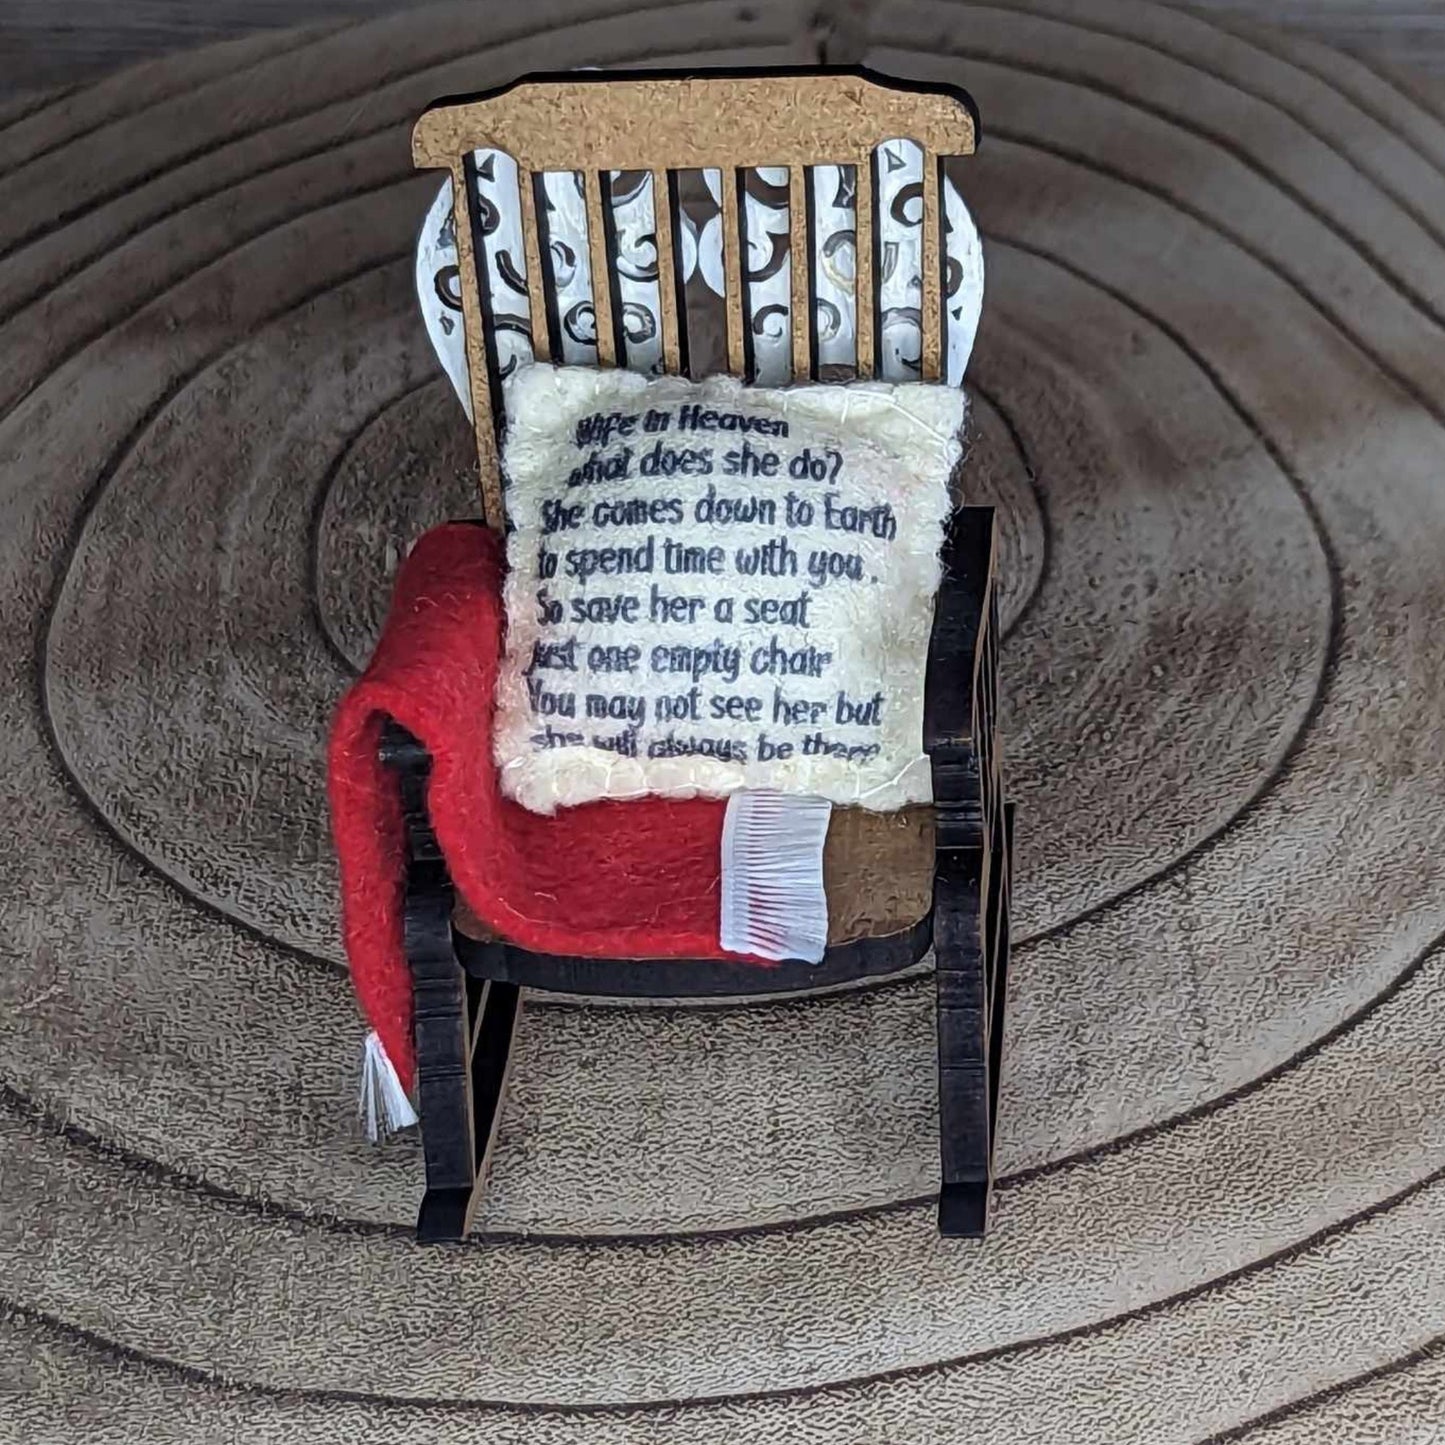 Wife in Heaven
what does she do?
She comes down to Earth
to spend time with you.
So save her a seat
just one empty chair
You may not see her but
she will always be there